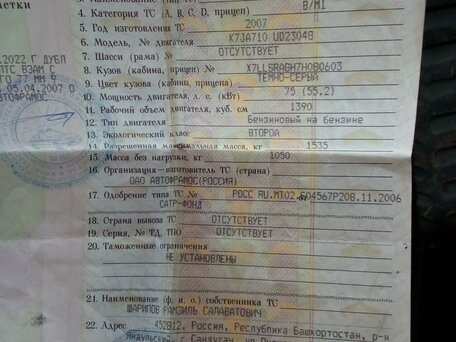 ТКИ
.2022 ДУБЛ
ПТС ВЗАМ С
05.04.2007 О
ВТОФРАМОС
4. Категория ТС (А, В, С, D, прицеп) В/М1
5. Год изготовления ТС 2007
6. Модель, № двигателя K7JA710 UD23048
7. Шасси (рама) № ОТСУТСТВУЕТ
8. Кузов (кабина, прицеп) № X7LLSRAGH7H080603
9. Цвет кузова (кабины, прицепа) ТЕМНО-СЕРЫЙ
10. Мощность двигателя, л. с. (кВт) 75 (55.2)
11. Рабочий объем двигателя, куб. см 1390
12. Тип двигателя Бензиновый на Бензине
13. Экологический класс ВТОРОЙ
14. Разрешенная максимальная масса, кг 1535
15. Масса без нагрузки, кг 1050
16. Организация–изготовитель ТС (страна)
ОАО АВТОФРАМОС(РОССИЯ)
17. Одобрение типа ТС № РОСС RU.МТ02.Е04567Р2 от 08.11.2006
САТР-ФОНД
18. Страна вывоза ТС ОТСУТСТВУЕТ
19. Серия, № ТД, ТПО ОТСУТСТВУЕТ
20. Таможенные ограничения
НЕ УСТАНОВЛЕНЫ
21. Наименование (ф. и. о.) собственника ТС
ШАРИПОВ РАМЗИЛЬ САЛАВАТОВИЧ
22. Адрес 452812, Россия, Республика Башкортостан, р-н
Янаульский, с Сандугач,